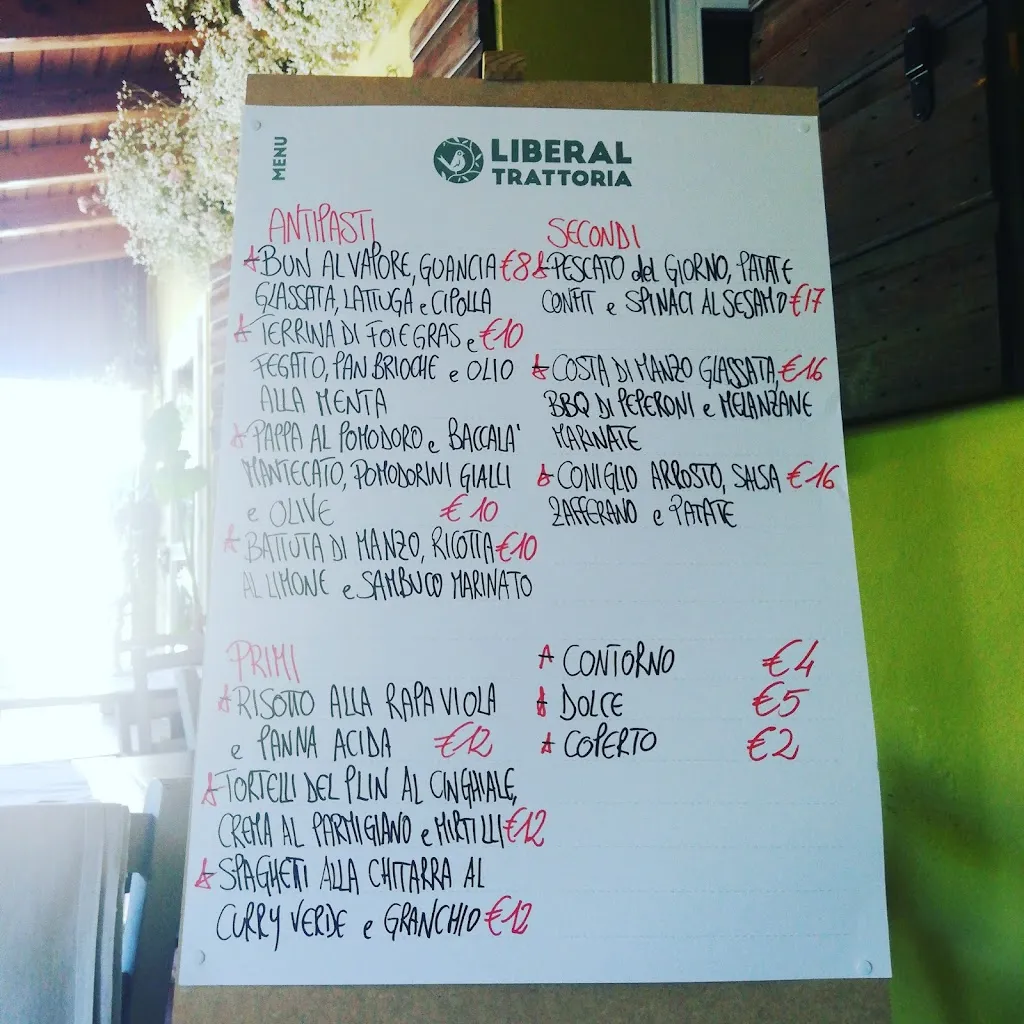 MENU
LIBERAL
TRATTORIA
ANTIPASTI
BUN AL VAPORE, GUANCIA €8
GLASSATA, LATTUGA e CIPOLLA
TERRINA DI FOIE GRAS e €10
FEGATO, PAN BRIOCHE e OLIO
ALLA MENTA
PAPPA AL POMODORO e BACCALA'
MANTECATO, POMODORINI GIALLI
e OLIVE €10
BATTUTA DI MANZO, RICOTTA €10
AL LIMONE e SAMBUCO MARINATO
PRIMI
RISOTTO ALLA RAPA VIOLA
e PANNA ACIDA €12
TORTELLI DEL PLIN AL CINGHIALE,
CREMA AL PARMIGIANO e MIRTILLI €12
SPAGHETTI ALLA CHITARRA AL
CURRY VERDE e GRANCHIO €12
SECONDI
PESCATO del GIORNO, PATATE
CONFIT e SPINACI AL SESAMO €17
COSTA DI MANZO GLASSATA, €16
BBQ DI PEPERONI e MELANZANE
MARINATE
CONIGLIO ARROSTO, SALSA €16
ZAFFERANO e PATATE
CONTORNO €4
DOLCE €5
COPERTO €2